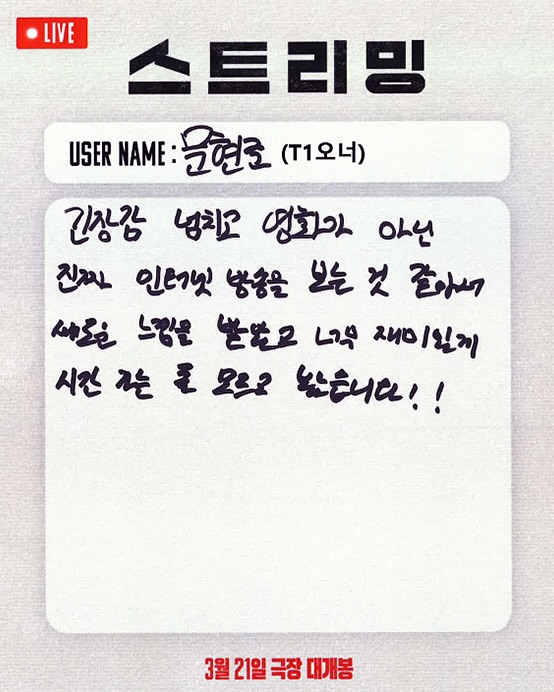 LIVE
스트리밍
USER NAME : 문현준 (T1오너)
긴장감 넘치고 영화가 아닌
진짜 인터넷 방송을 보는 것 같아서
새로운 느낌을 받았고 너무 재미있게
시간 가는 줄 모르고 봤습니다!!
3월 21일 극장 대개봉